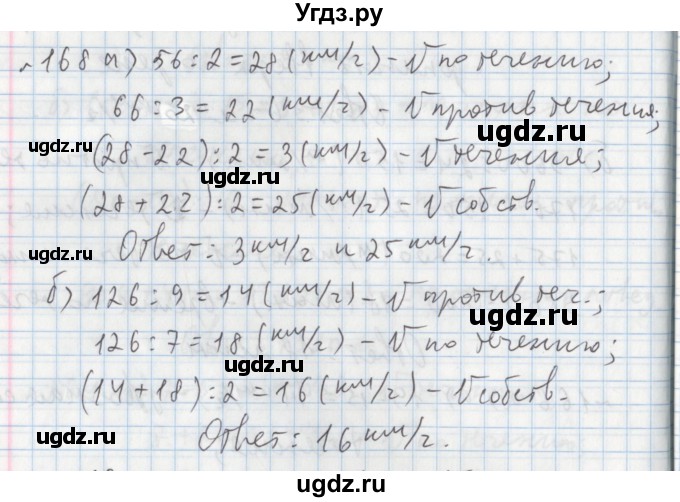 Угдз.ру
№168 а) 56:2=28(км/г) - V по течению;
66:3=22(км/г) - V против течения;
(28-22):2=3(км/г) - V течения;
(28+22):2=25(км/г) - V собств.
Ответ: 3 км/г и 25 км/г.
б) 126:9=14(км/г) - V против теч.;
126:7=18(км/г) - V по течению;
(14+18):2=16(км/г) - V собств.
Ответ: 16 км/г.
ugdz.ru
ugdz.ru
ugdz.ru
ugdz.ru
ugdz.ru
ugdz.ru
ugdz.ru
ugdz.ru